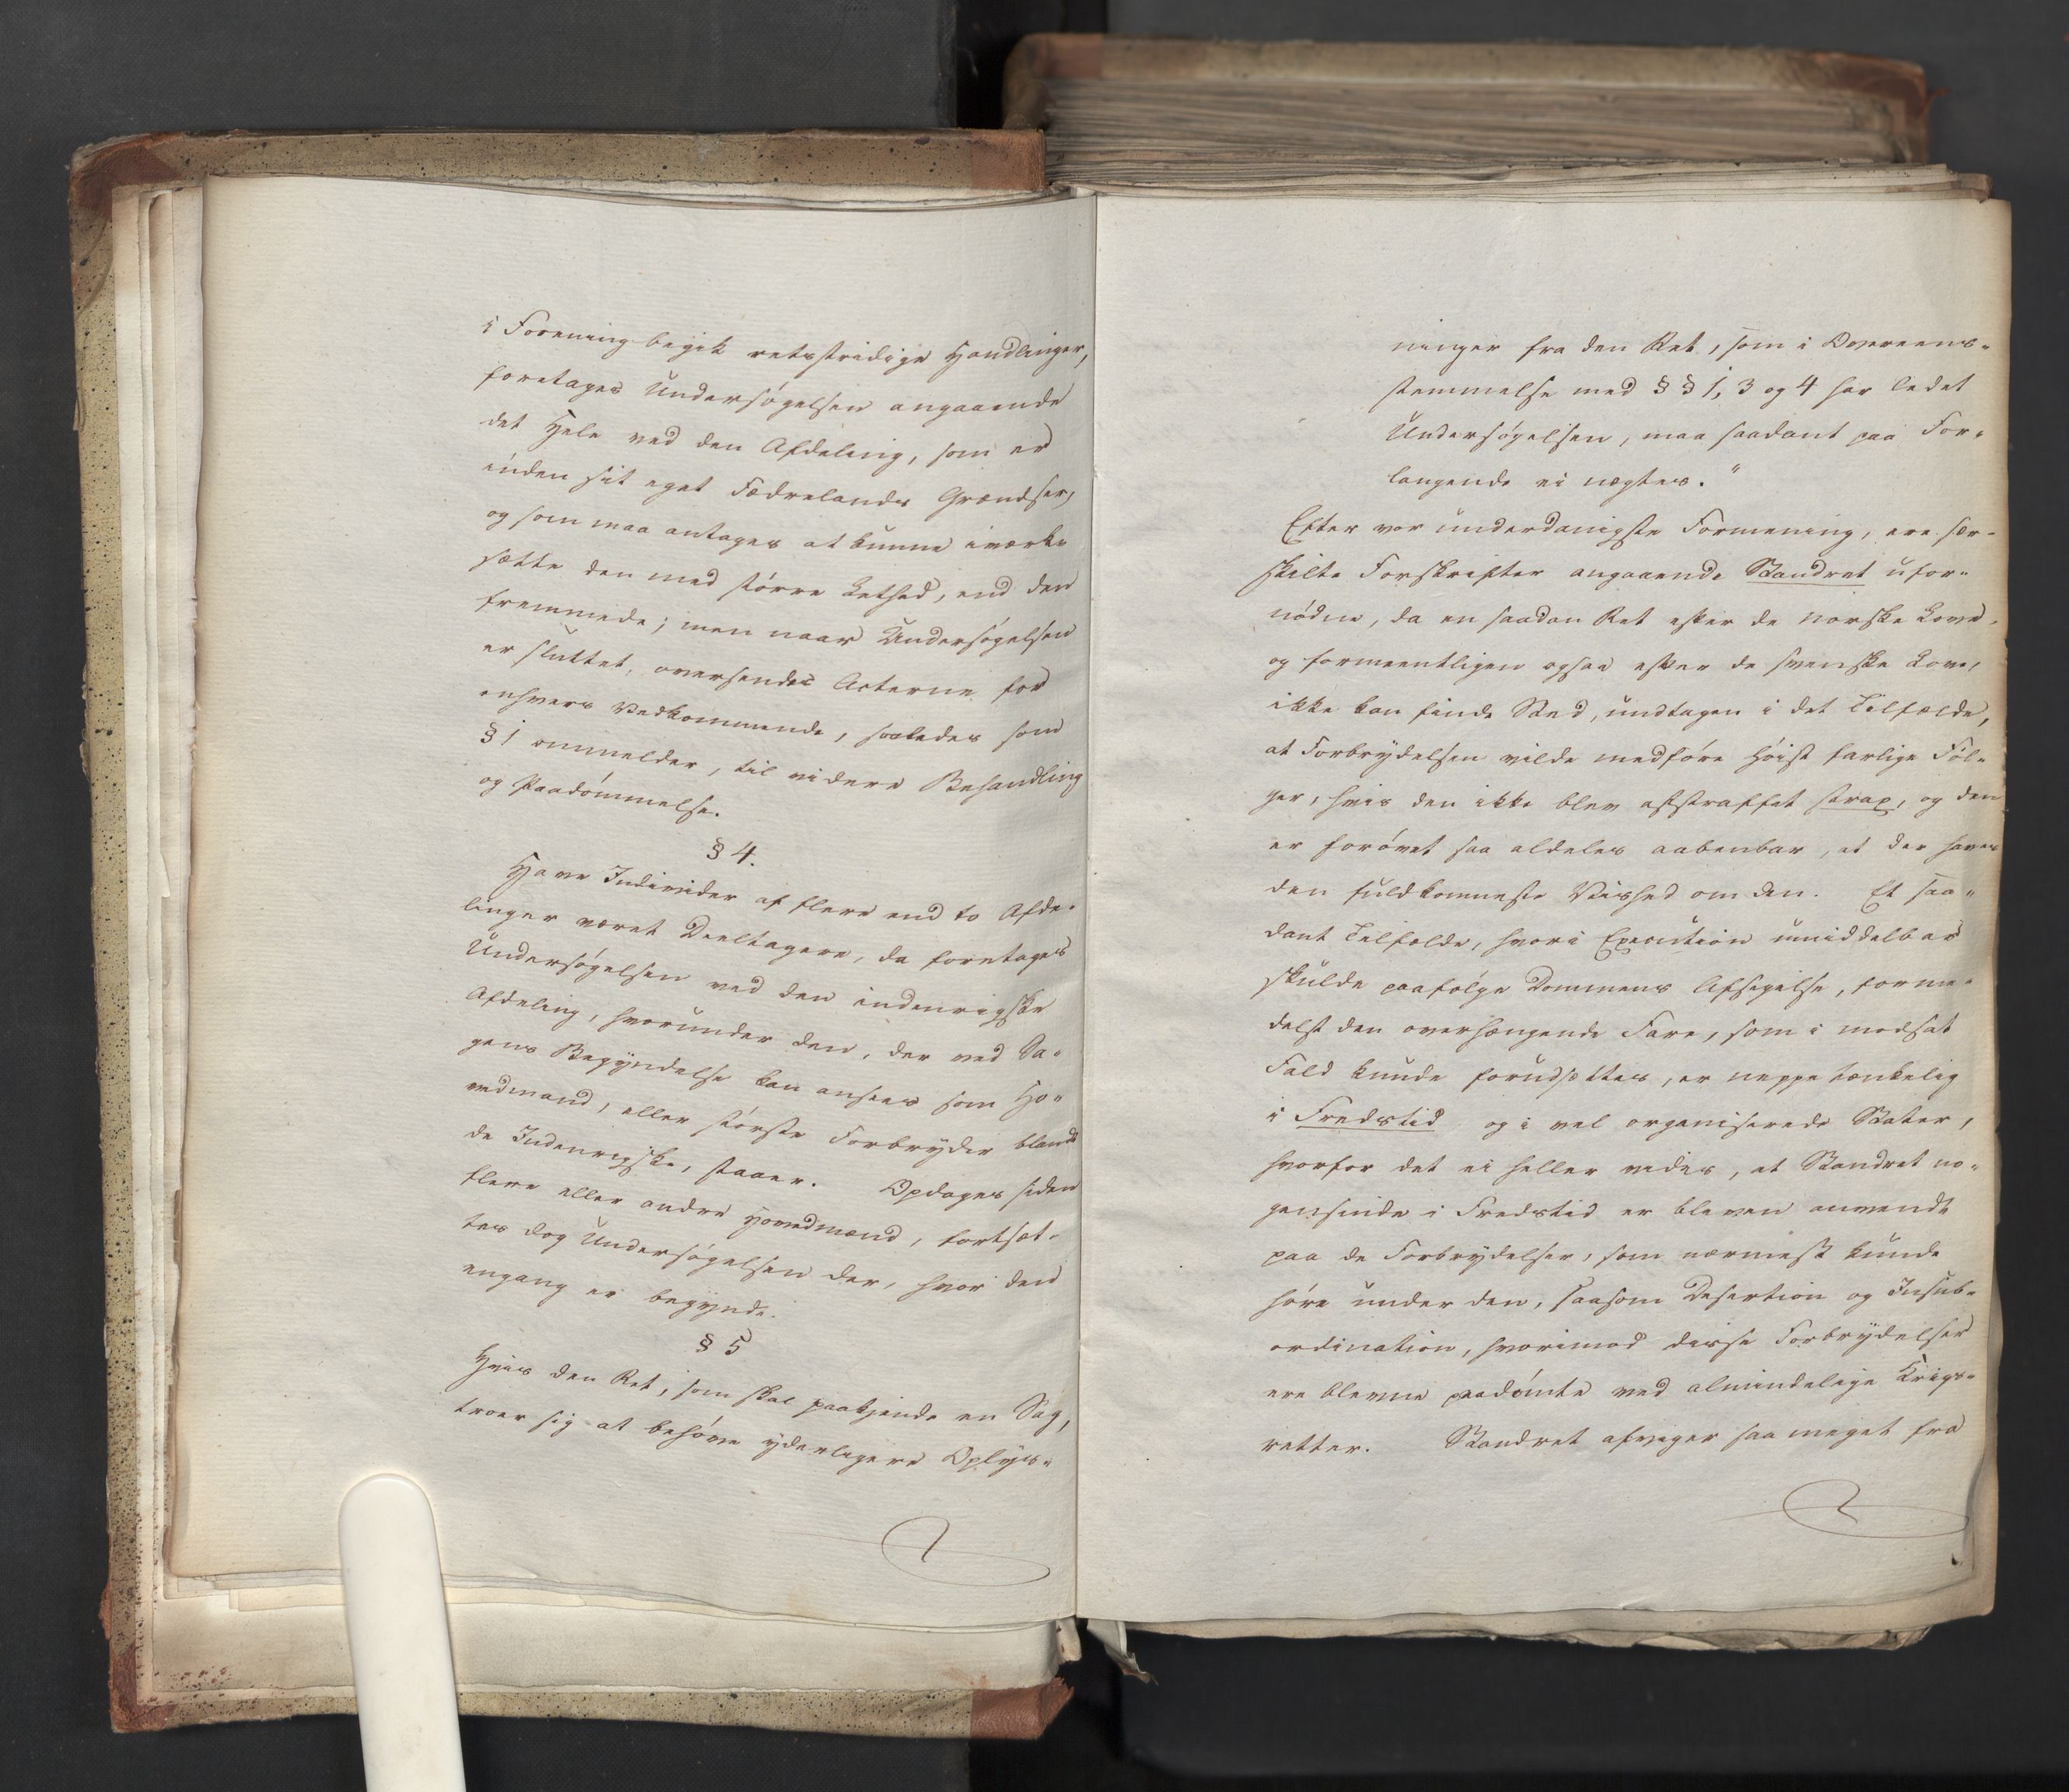 i Forening begik retsstridige Handlinger,
foretages Undersøgelsen angaaende
det Hele ved den Afdeling, som er
inden sit eget Fædrelands Grændser,
og som maa antages at kunne iværk-
sætte den med større Lethed, end den
fremmede; men naar Undersøgelsen
er sluttet, oversendes Acterne for
enhvers Vedkommende, saaledes som
§ 1 ommelder, til videre Behandling
og Paadømmelse.
§ 4.
Have Individer af flere end to Afde-
linger været Deeltagere, da foretages
Undersøgelsen ved den indenrigske
Afdeling, hvorunder den, der ved Sa-
gens Begyndelse kan ansees som Ho-
vedmand, eller største Forbryder blandt
de Indenrigske, staaer. Opdages siden
flere eller andre Hovedmænd, fortsæt-
tes dog Undersøgelsen der, hvor den
engang er begyndt.
§ 5
Hvis den Ret, som skal paakjende en Sag,
troer sig at behøve yderligere Oplys-
ninger fra den Ret, som i Overeens-
stemmelse med § § 1, 3 og 4 har ledet
Undersøgelsen, maa saadant paa For-
langende ei nægtes."
Efter vor underdanigste Formening, ere sær-
skilte Forskrifter angaaende Standret ufor-
nødne, da en saadan Ret efter de norske Love,
og formeentligen ogsaa efter de svenske Love,
ikke kan finde Sted, undtagen i det Tilfælde,
at Forbrydelsen vilde medføre høist farlige Føl-
ger, hvis den ikke blev afstraffet strax, og den
er forøvet saa aldeles aabenbar, at der haves
den fuldkomneste Vished om den. Et saa-
dant Tilfælde, hvori Execution umiddelbar
skulde paafølge Dommens Afsigelse, forme-
delst den overhængende Fare, som i modsat
Fald kunde forudsættes, er neppe tænkelig
i Fredstid og i vel organiserede Stater,
hvorfor det ei heller vides, at Standret no-
gensinde i Fredstid er bleven anvendt
paa de Forbrydelser, som nærmest kunde
høre under den, saasom Desertion og Insub-
ordination, hvorimod disse Forbrydelser
ere blevne paadømte ved almindelige Krigs-
retter. Standret afviger saa meget fra